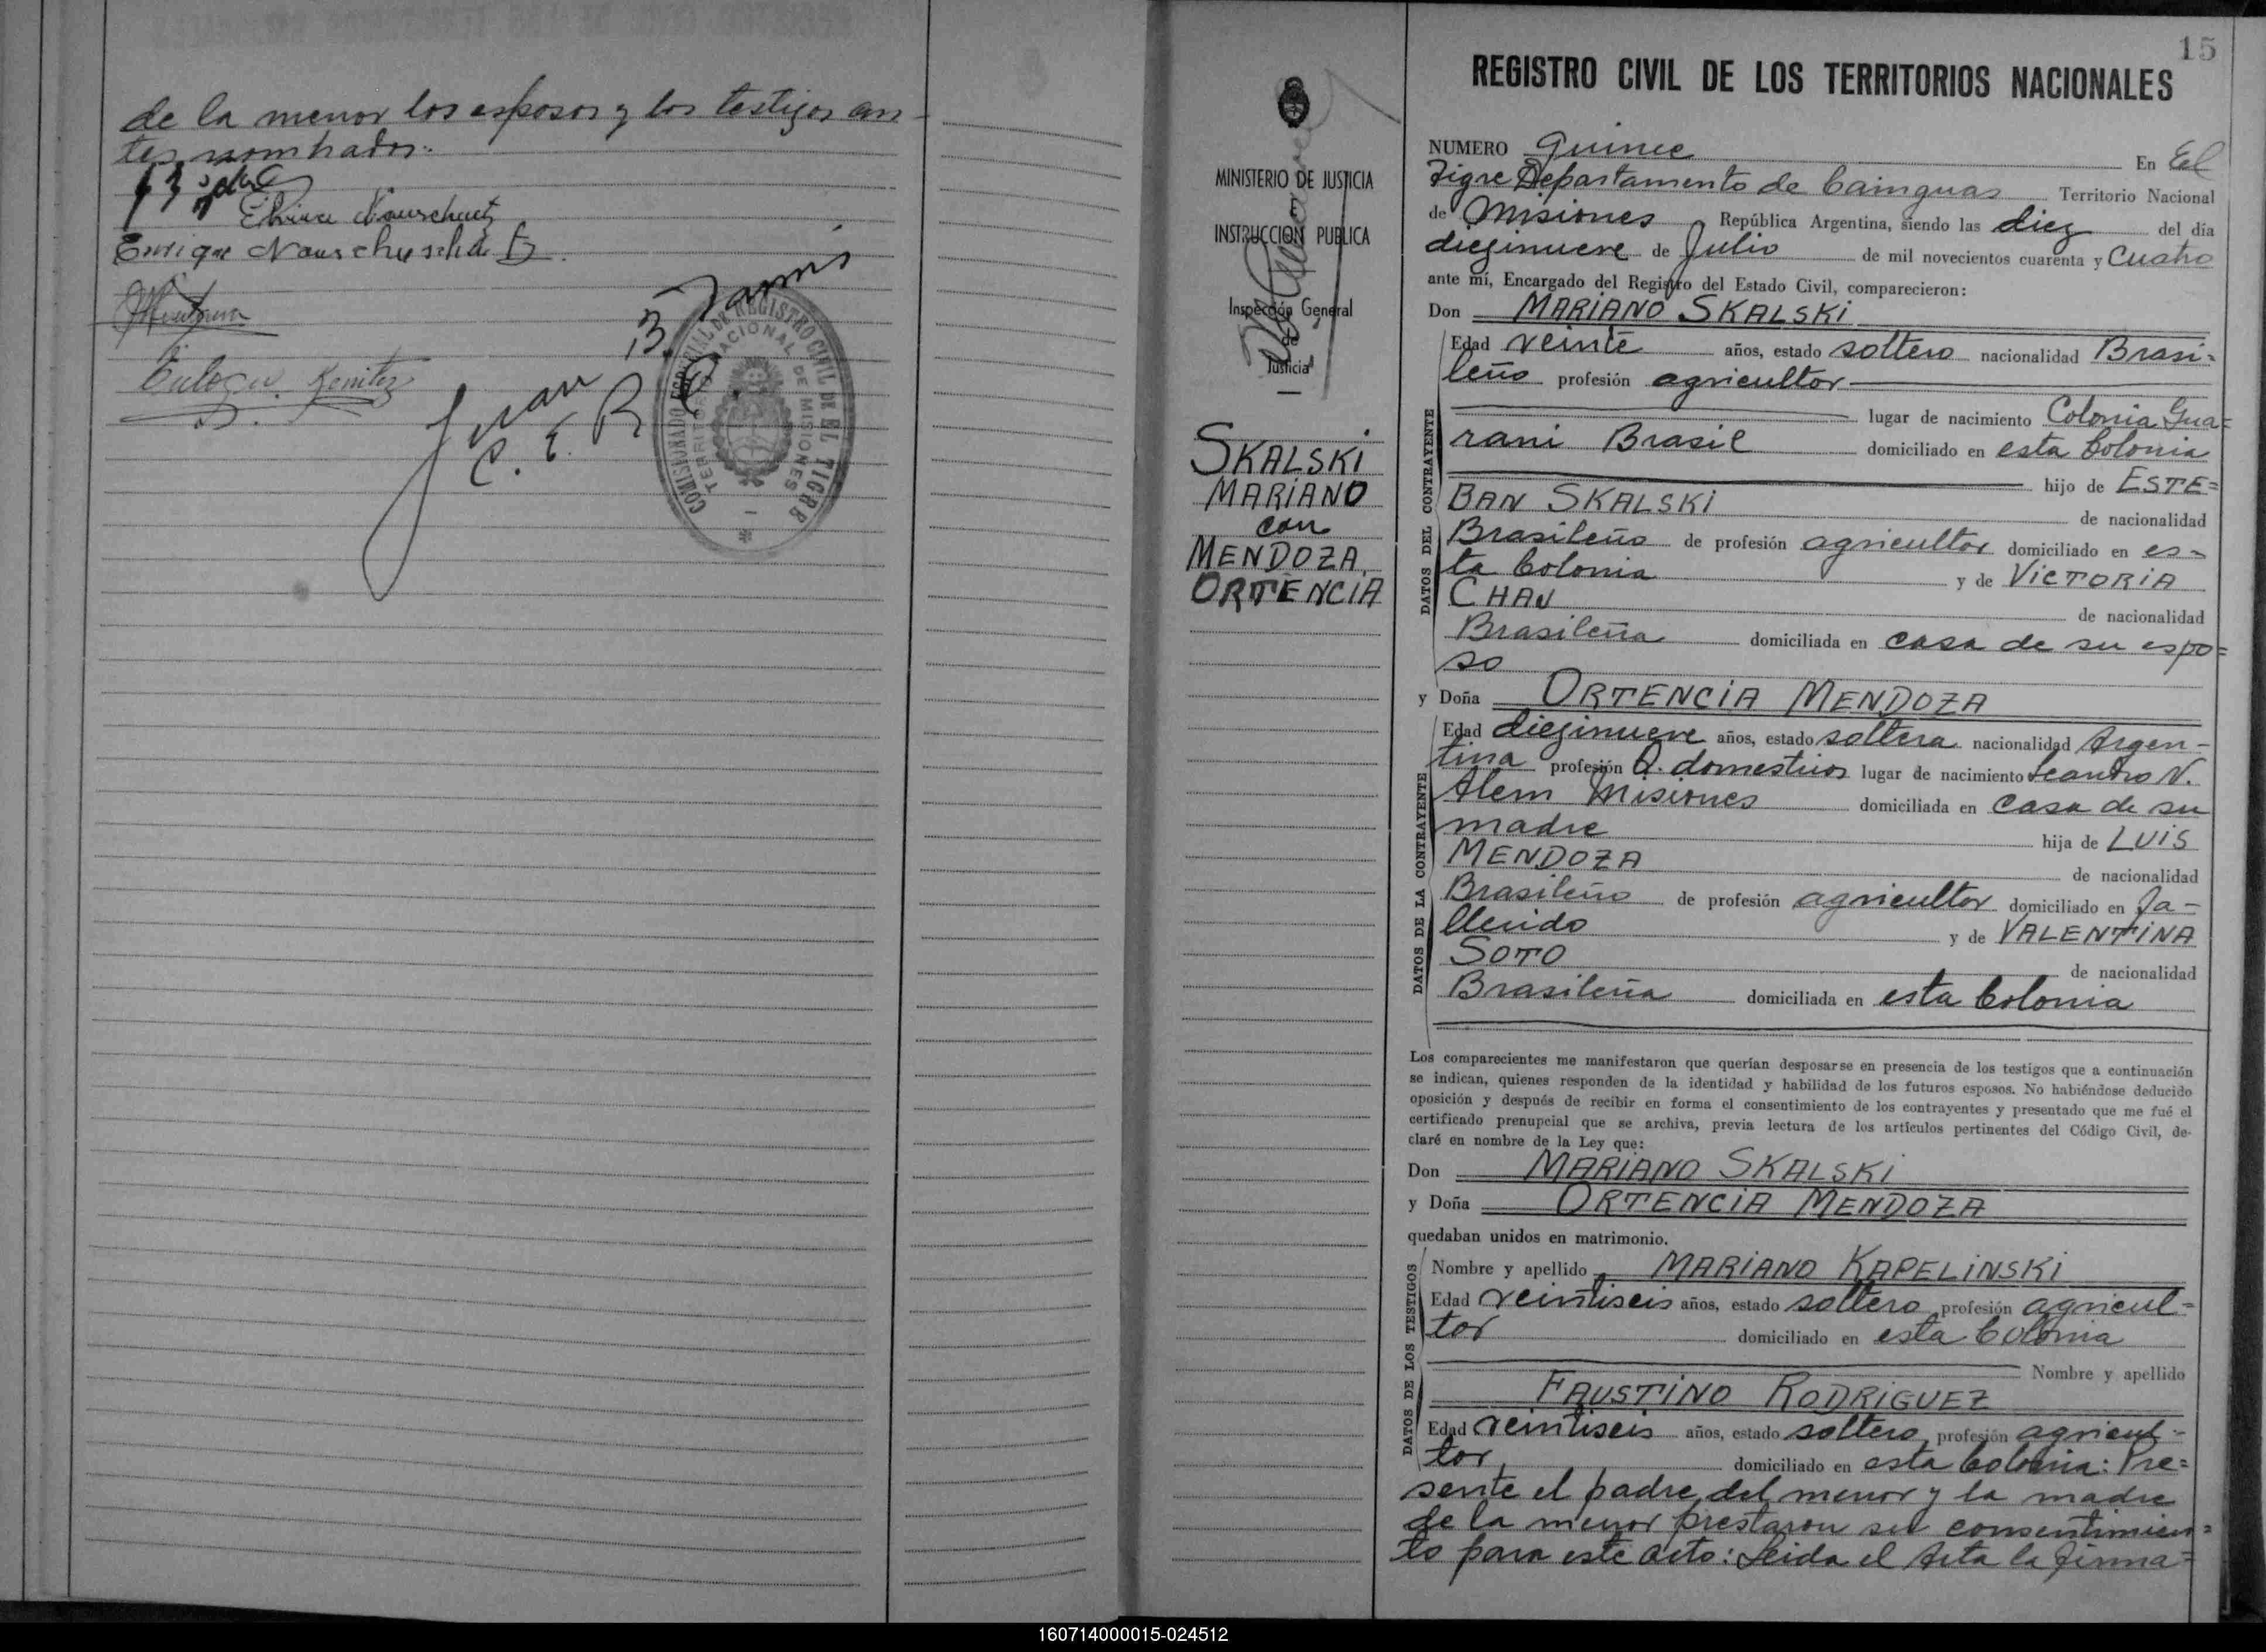 de la menor los esposos y los testigos an-
tes nombrados.-
Enrique
Juan B.
C. E. R. C.
COMISIONADO ESPECIAL DE REGISTRO CIVIL DE EL TIGRE
TERRITORIO NACIONAL DE MISIONES
15
REGISTRO CIVIL DE LOS TERRITORIOS NACIONALES
MINISTERIO DE JUSTICIA
E
INSTRUCCION PUBLICA
Inspección General
de
Justicia
SKALSKI
MARIANO
con
MENDOZA
ORTENCIA
NUMERO Quince En El
Tigre Departamento de Cainguas Territorio Nacional
de Misiones República Argentina, siendo las diez del día
diezinueve de Julio de mil novecientos cuarenta y Cuatro
ante mí, Encargado del Registro del Estado Civil, comparecieron:
Don MARIANO SKALSKI
DATOS DEL CONTRAYENTE
Edad veinte años, estado soltero nacionalidad Brasi=
leño profesión agricultor
lugar de nacimiento Colonia Gua=
rani Brasil domiciliado en esta Colonia
hijo de ESTE=
BAN SKALSKI de nacionalidad
Brasileño de profesión agricultor domiciliado en es-
ta Colonia y de VICTORIA
CHAN de nacionalidad
Brasileña domiciliada en casa de su espo=
so
y Doña ORTENCIA MENDOZA
DATOS DE LA CONTRAYENTE
Edad diezinueve años, estado soltera nacionalidad Argen-
tina profesión Q. domesticos lugar de nacimiento Leandro N.
Alem Misiones domiciliada en casa de su
madre hija de LUIS
MENDOZA de nacionalidad
Brasileño de profesión agricultor domiciliado en fa-
llecido y de VALENTINA
SOTO de nacionalidad
Brasileña domiciliada en esta Colonia
Los comparecientes me manifestaron que querían desposarse en presencia de los testigos que a continuación
se indican, quienes responden de la identidad y habilidad de los futuros esposos. No habiéndose deducido
oposición y después de recibir en forma el consentimiento de los contrayentes y presentado que me fué el
certificado prenupcial que se archiva, previa lectura de los artículos pertinentes del Código Civil, de-
claré en nombre de la Ley que:
Don MARIANO SKALSKI
y Doña ORTENCIA MENDOZA
quedaban unidos en matrimonio.
DATOS DE LOS TESTIGOS
Nombre y apellido MARIANO KAPELINSKI
Edad veintiseis años, estado soltero profesión agricul=
tor domiciliado en esta Colonia
Nombre y apellido
FAUSTINO RODRIGUEZ
Edad veintiseis años, estado soltero, profesión agricul-
tor domiciliado en esta Colonia: Pre=
sente el padre del menor y la madre
de la menor prestaron su consentimien=
to para este acto: Leida el Acta la firma=
160714000015-024512